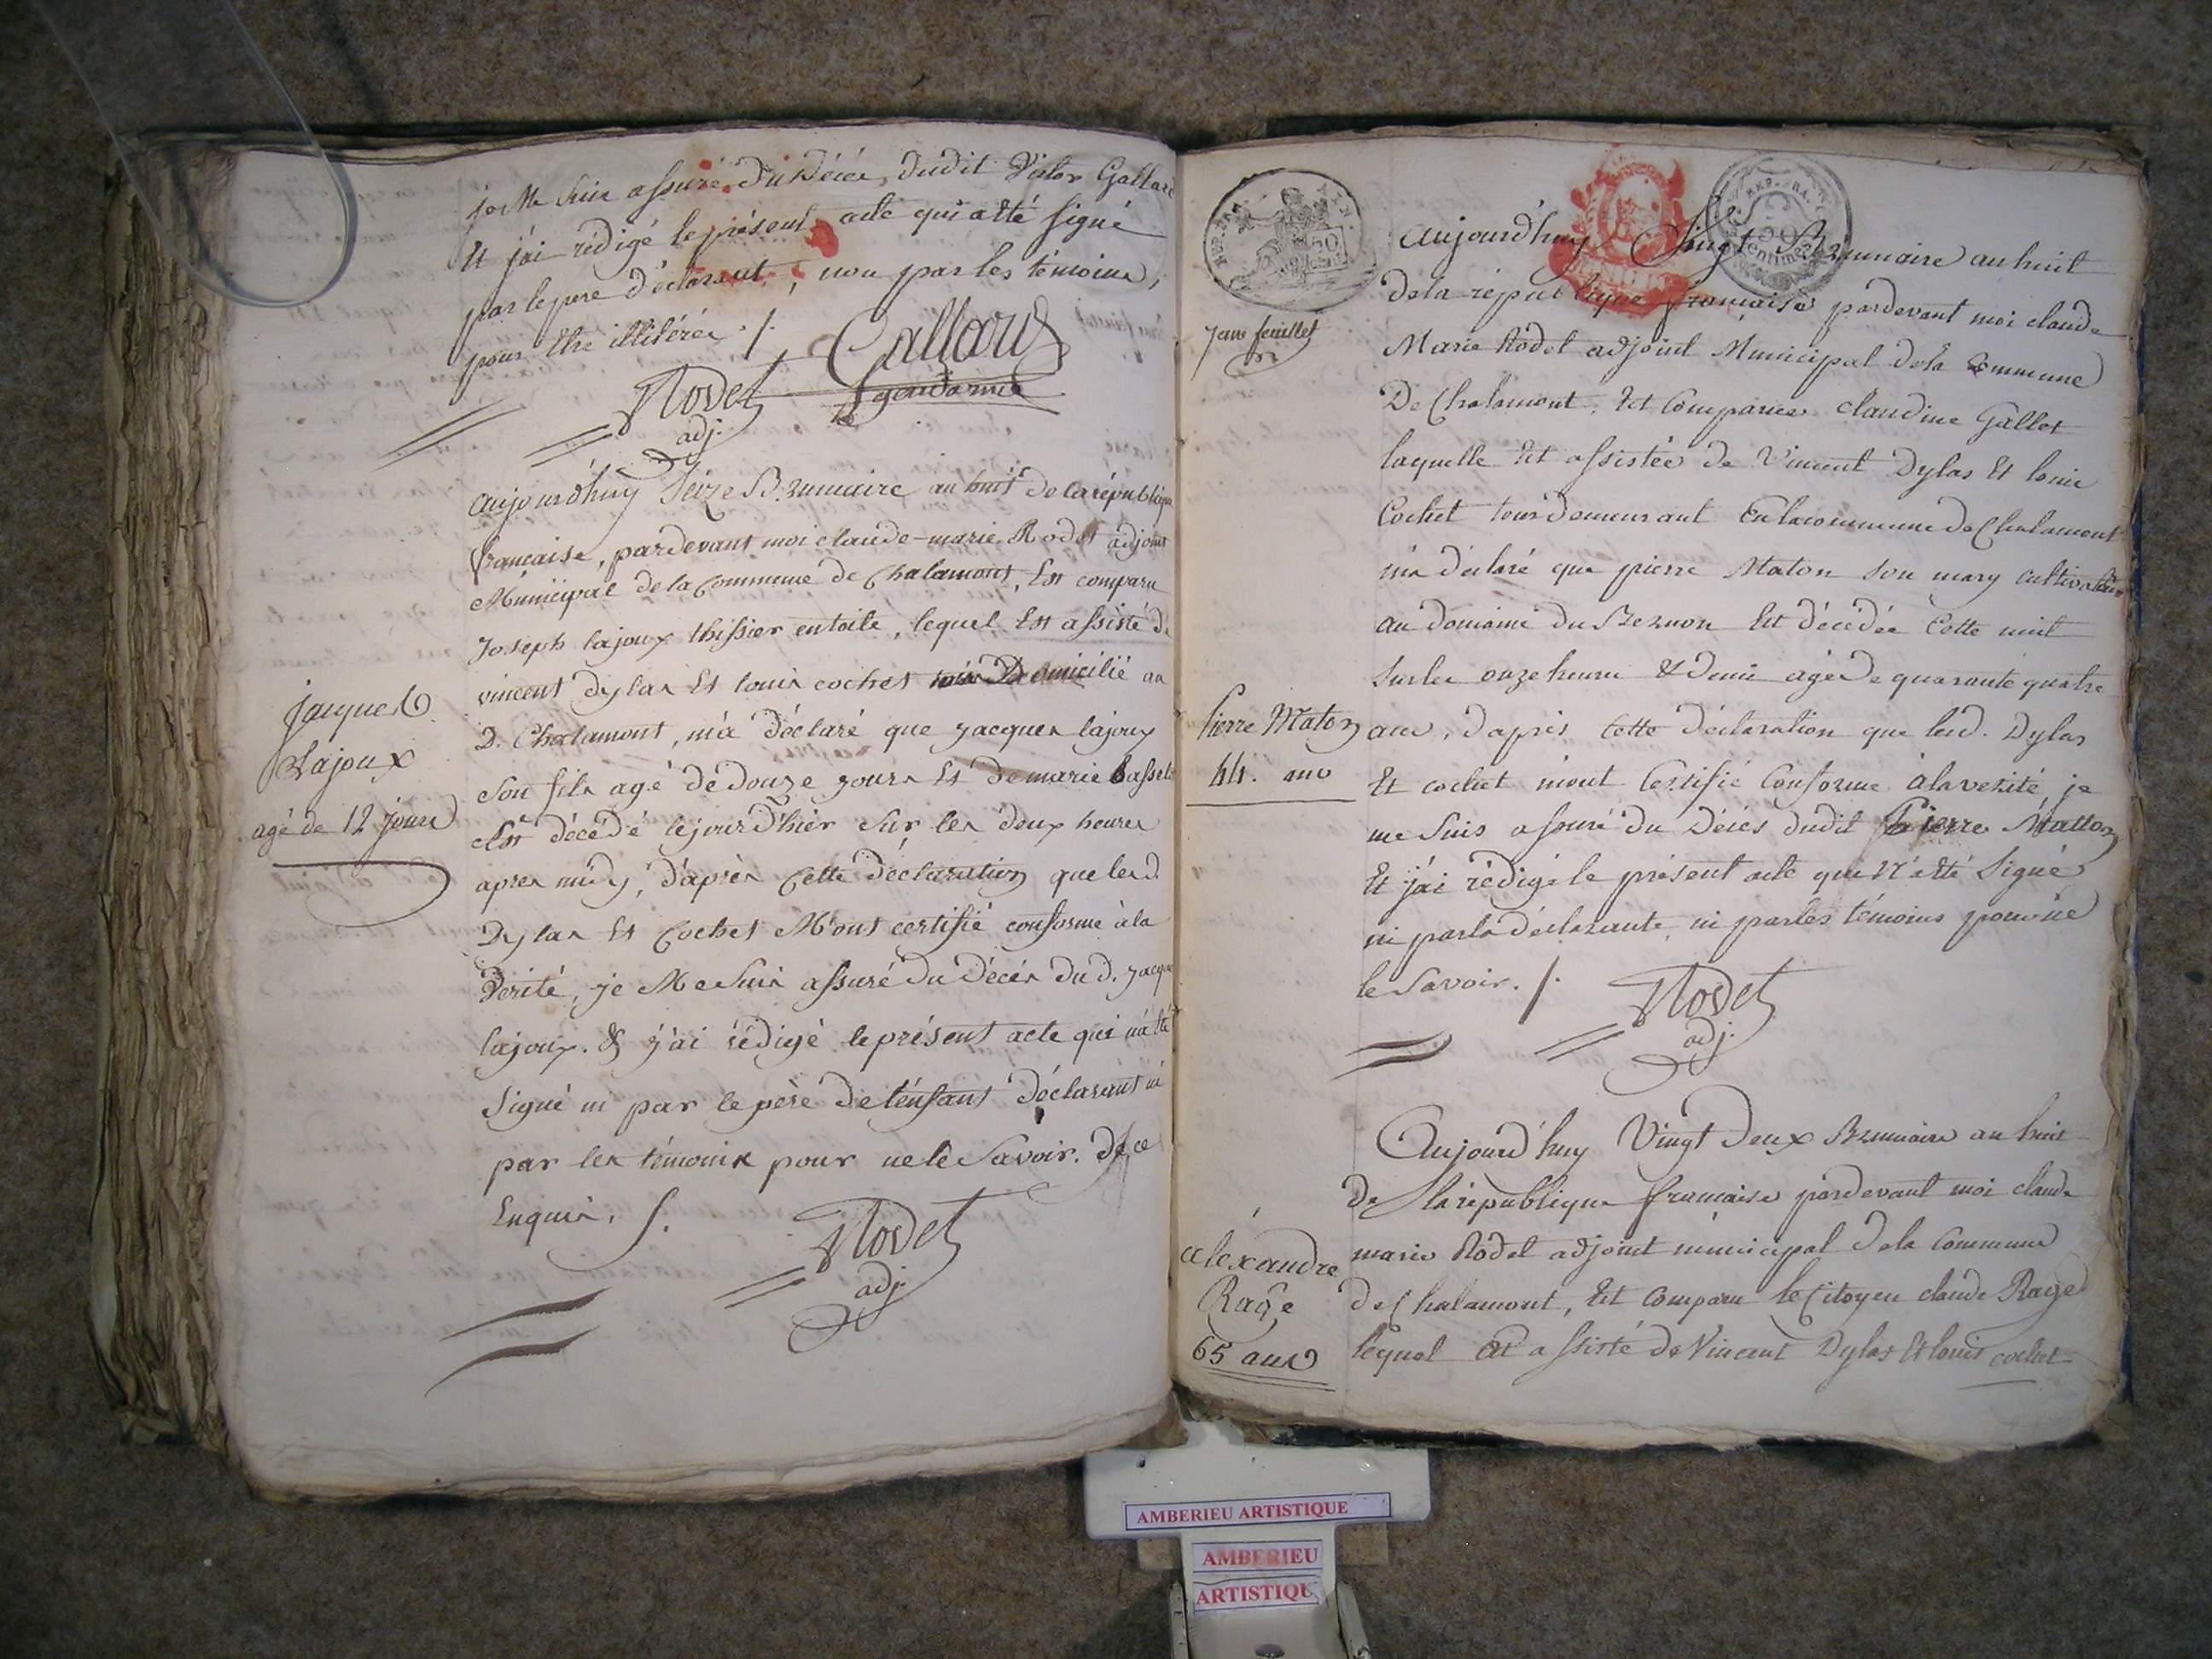 je Me suis assuré du décès dudit Victor Gallard
Et j'ai rédigé le présent acte qui a été signé
par le pere déclarant, non par les témoins,
pour être illitérés ./.
Gallard
gendarme
Rodet
adj.
aujourd'huy Seize Brumaire an huit de la république
française, pardevant moi claude-marie Rodet adjoint
Municipal de la Commune de Chalamont, Est comparu
Joseph lajoux thissier en toile, lequel Est assisté de
vincent dylas Et louis cochet Domicilié au
D. Chalamont, m'a déclaré que jacques lajoux
son fils agé de douze jours Et de marie basset
Est décédé le jour d'hier sur les deux heures
apres midy, d'après Cette déclaration que lesd.
Dylas Et Cochet M'ont certifié conforme à la
Vérité, je Me suis assuré du décès dud. jacque
lajoux. & j'ai rédigé le présent acte qui n'a été
Signé ni par le père de l'énfant déclarant ni
par les témoins pour ne le Savoir. De ce
Enquis. /.
Rodet
adj.
jacque
Lajoux
agé de 12 jours
REP. FRA.
50
CENT.
REP. FRA.
50
Centimes
7eme feuillet
R
aujourd'huy Vingt Brumaire an huit
de la république française pardevant moi claude
Marie Rodet adjoint Municipal de la Commune
De Chalamont, Est Comparue claudine Gallet
laquelle Est assistée de Vincent Dylas Et louis
Cochet tous demeurant En la commune de Chalamont
m'a déclaré que pierre Maton son mary cultivateur
au domaine du Bernon Est décédée Cette nuit
sur les onze heures & demie agé de quarante quatre
ans, d'après Cette déclaration que lesd. Dylas
Et cochet m'ont Certifié Conforme à la verité, je
me Suis assuré du Décés dudit Pierre Matton
Et j'ai rédigé le présent acte qui N'a été Signé
ni par la déclarante, ni par les témoins pour ne
le Savoir. /.
Rodet
adj.
Pierre Maton
44. ans
Aujourd'huy Vingt Deux Brumaire an huit
De la république française pardevant moi claude
marie Rodet adjoint municipal de la Commune
de Chalamont, Est Comparu le Citoyen claude Rage
lequel Est assisté de Vincent Dylas Et louis cochet
alexandre
Rage
65 ans
AMBERIEU ARTISTIQUE
AMBERIEU
ARTISTIQU